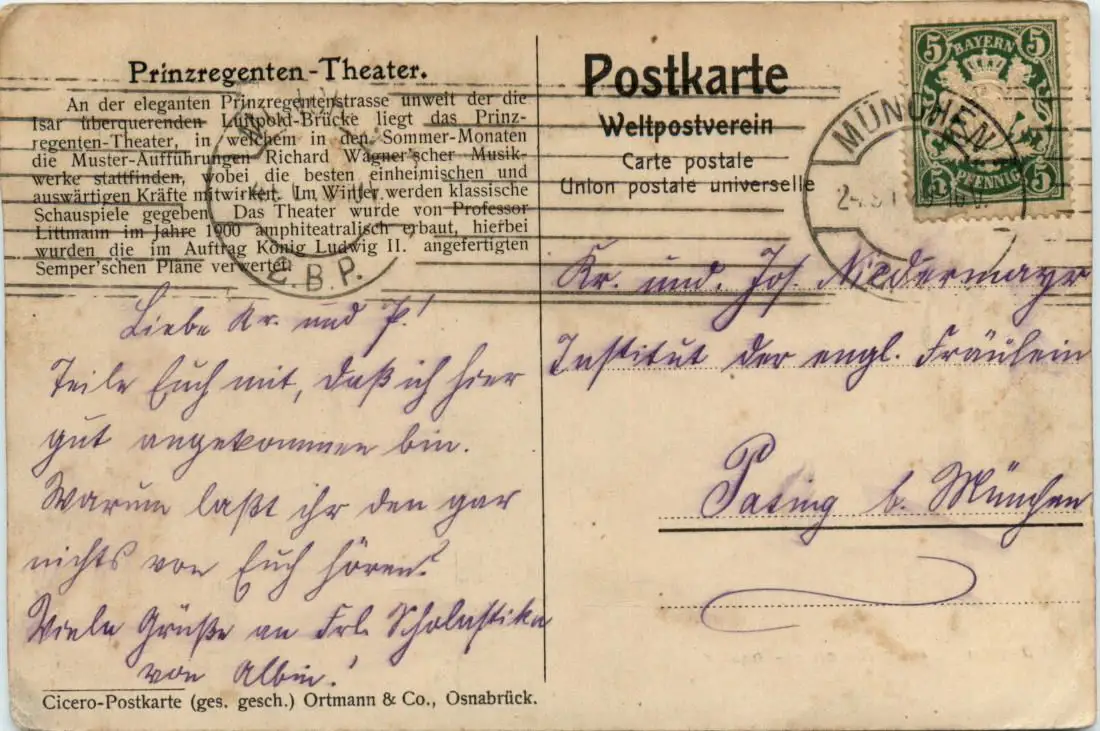 Prinzregenten-Theater.
An der eleganten Prinzregentenstrasse unweit der die
Isar überquerenden Luitpold-Brücke liegt das Prinz-
regenten-Theater, in welchem in den Sommer-Monaten
die Muster-Aufführungen Richard Wagner'scher Musik-
werke stattfinden, wobei die besten einheimischen und
auswärtigen Kräfte mitwirken. Im Winter werden klassische
Schauspiele gegeben. Das Theater wurde von Professor
Littmann im Jahre 1900 amphiteatralisch erbaut, hierbei
wurden die im Auftrag König Ludwig II. angefertigten
Semper'schen Pläne verwertet.
Liebe Kr. und J!
Teile Euch mit, daß ich hier
gut angekommen bin.
Warum laßt ihr den gar
nichts von Euch hören?
Viele Grüße an Frl. Scholastika
von Albin!
Cicero-Postkarte (ges. gesch.) Ortmann & Co., Osnabrück.
Postkarte
Weltpostverein
Carte postale
Union postale universelle
5 BAYERN 5
5 PFENNIG 5
MÜNCHEN
B.P.
Kr. und. Jos. Niedermayr
Institut der engl. Fräulein
Pasing b. München